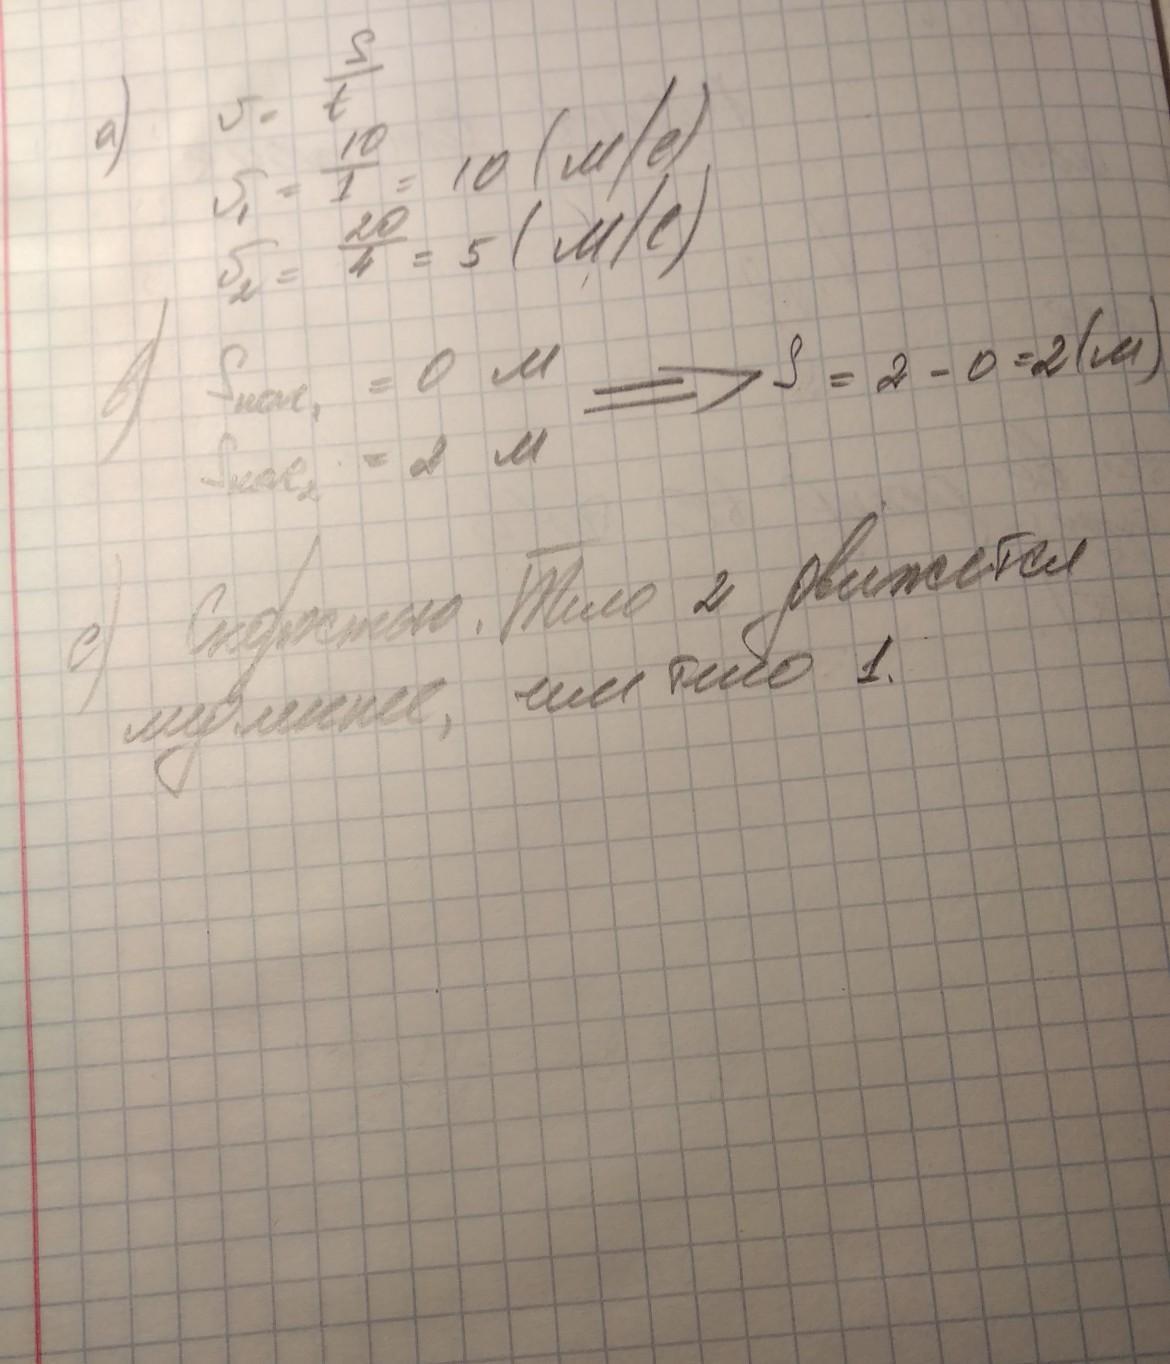 a) υ = S/t
υ₁ = 10/1 = 10 (м/с)
υ₂ = 20/4 = 5 (м/с)
b) Sнач₁ = 0 м ⟹ S = 2 - 0 = 2 (м)
Sнач₂ = 2 м
c) Скоростью. Тело 2 движется
медленнее, чем тело 1.